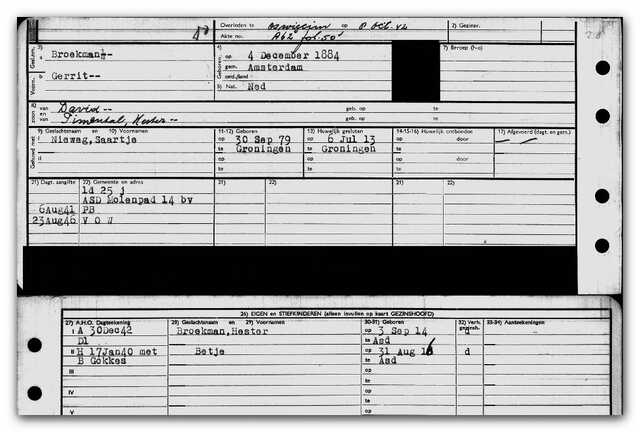 Overleden te oswiecim op 8 Oct. 42 2) Gezinsr.
Akte no. A62 fol. 50
3) Broekman--
Gerrit--
4) op 4 December 1884
gem. Amsterdam
ond./land
5) Nat. Ned
7) Beroep (No)
8) van David-- geb. op te
en van Pimentel, Hester-- geb. op te
9) Geslachtsnaam en 10) Voornamen 11-12) Geboren 13) Huwelijk gesloten 14-15-16) Huwelijk ontbonden 17) Afgevoerd (dagt. en gem.)
I Nieweg, Saartje op 30 Sep 79 op 6 Jul 13 op door
te Groningen te Groningen te
II op op op door
te te te
21) Dagt. aangifte 22) Gemeente en adres
ld 25 j
ASD Molenpad 14 bv
6Aug41 PB
23Aug46 V O W
26) EIGEN en STIEFKINDEREN (alleen invullen op kaart GEZINSHOOFD)
27) A.H.O. Dagtekening 28) Geslachtsnaam en 29) Voornamen 30-31) Geboren 32) Verh. gezinsh. 33-34) Aantekeningen
I A 30Dec42 Broekman, Hester op 3 Sep 14 d
Dl te Asd
II H 17Jan40 met Betje op 31 Aug 16 d
B Gokkes te Asd
III op
te
IV op
te
V op